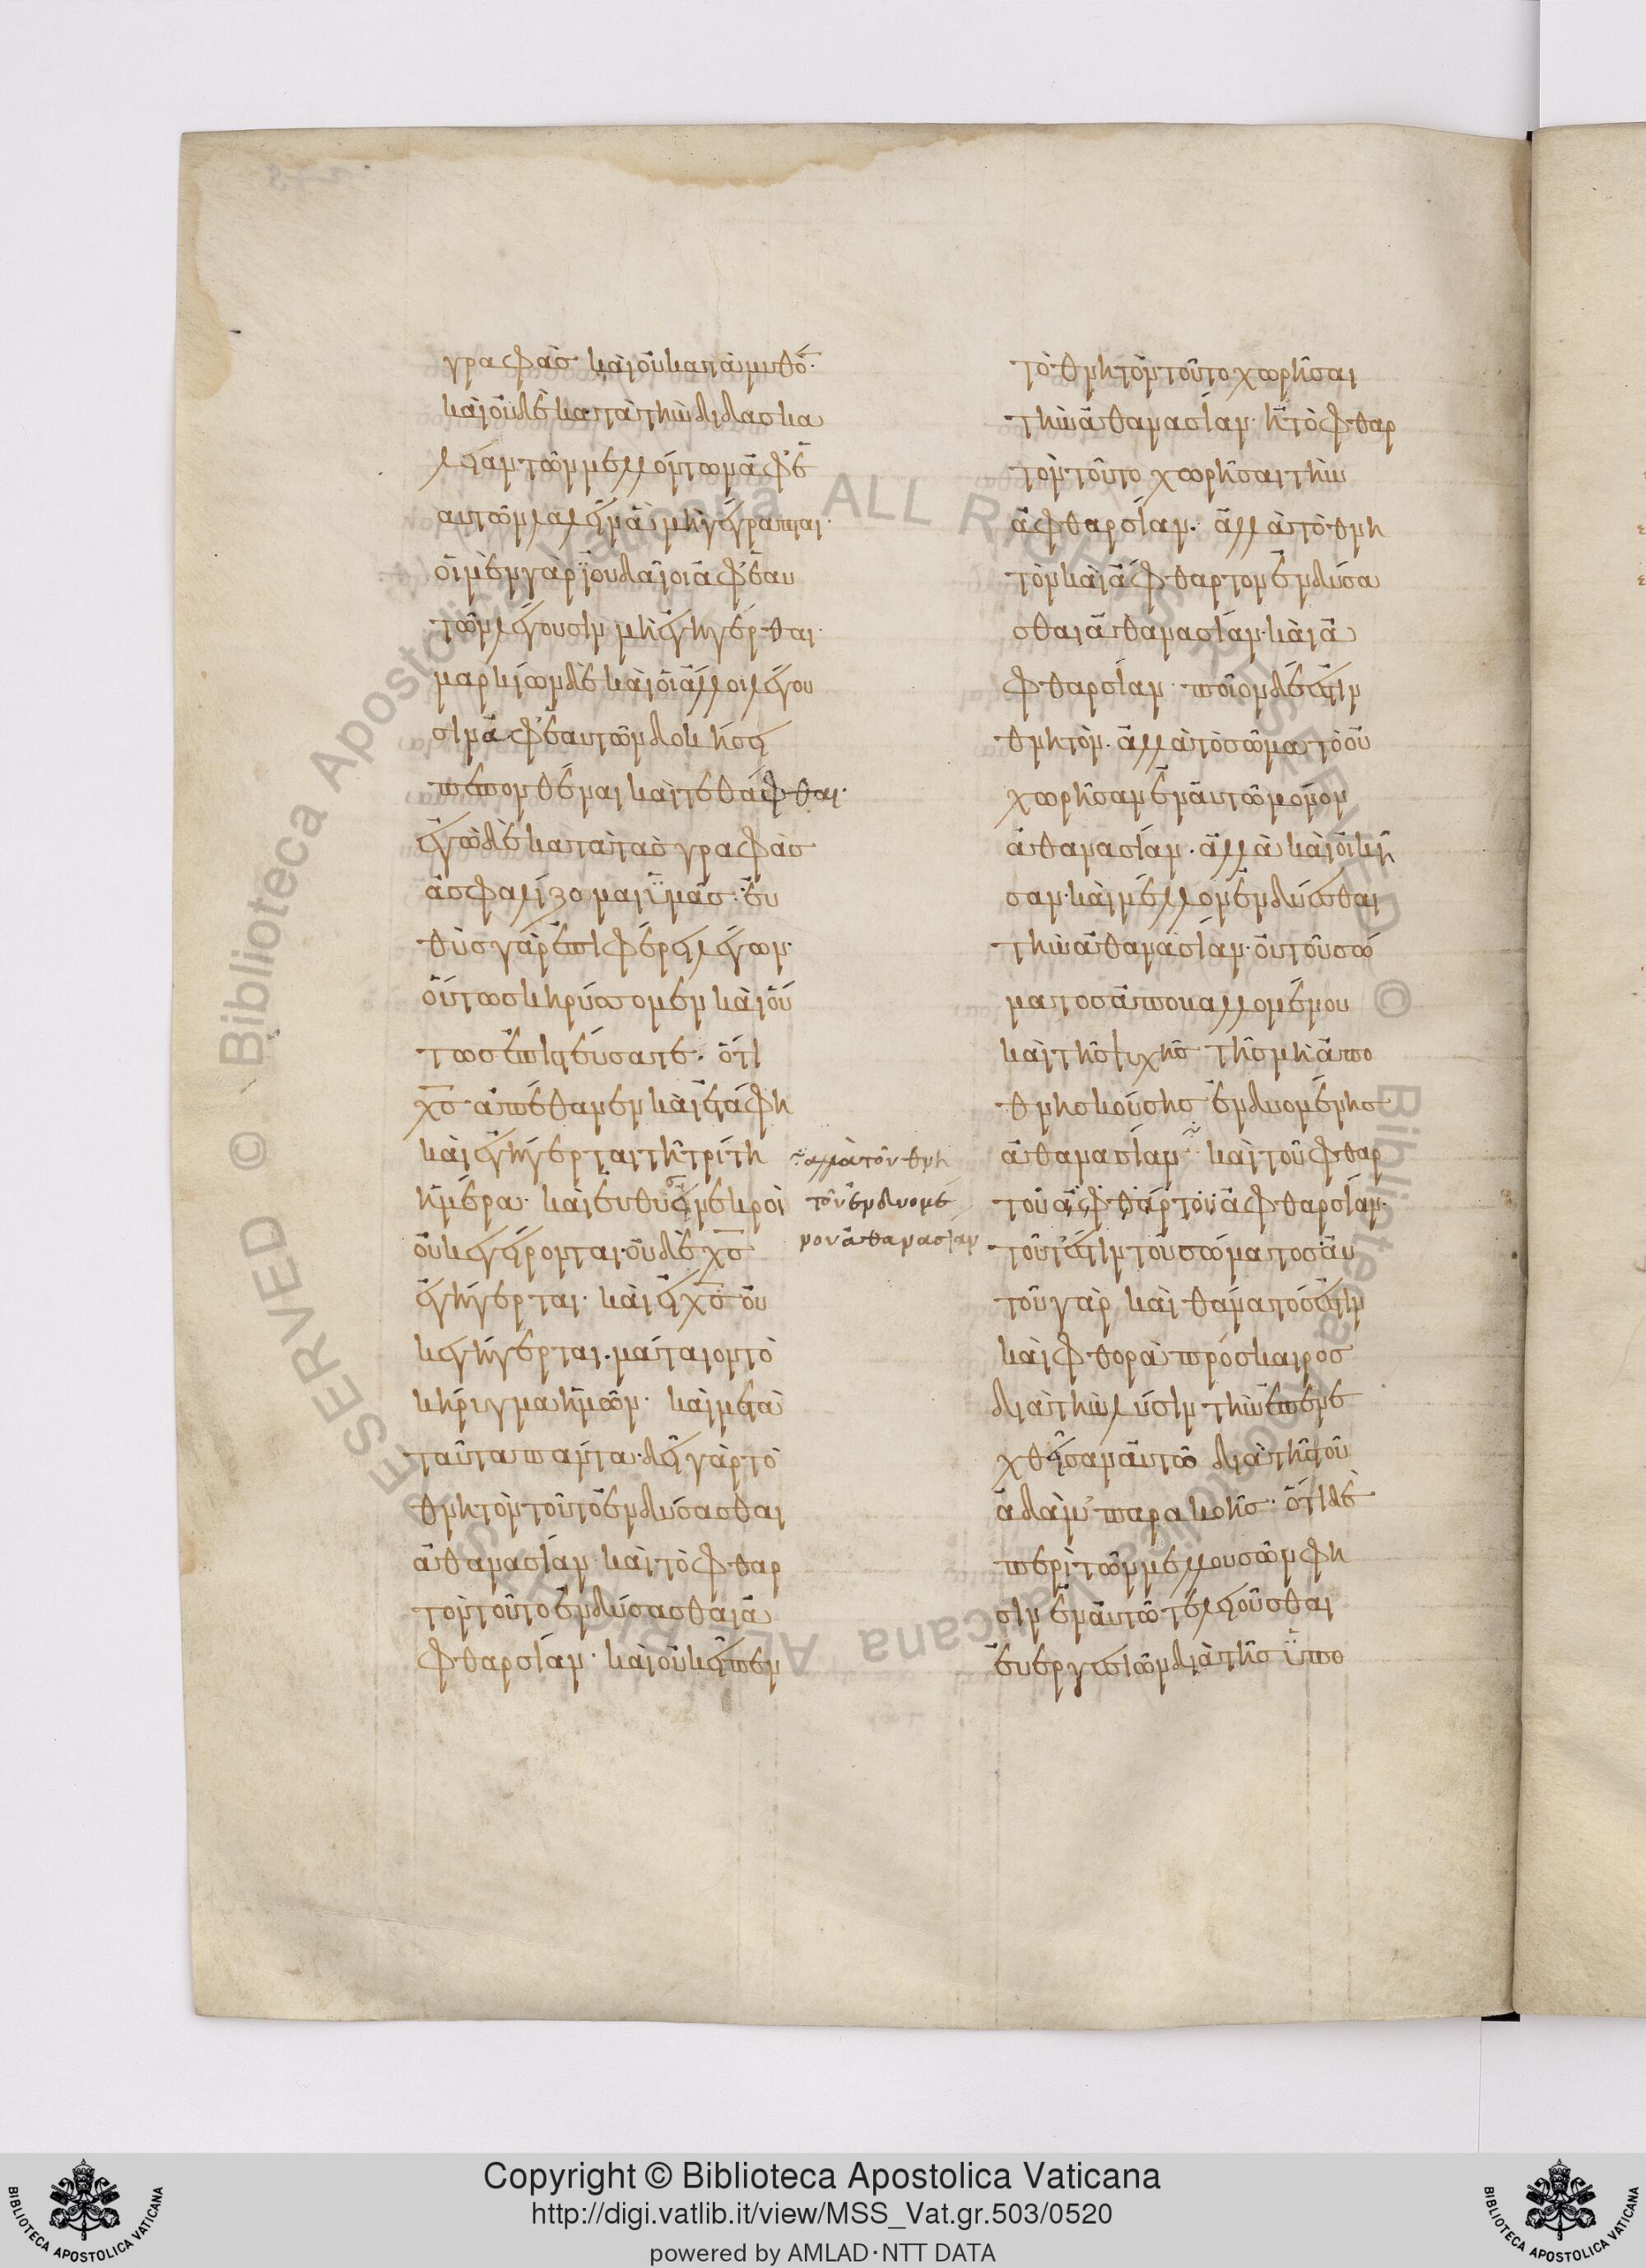 γραφὰσ· καὶ οὐ κατὰ μυθο·
καὶ οὐδὲ κατὰ τὴν διδασκα
λείαν τῶν μελλόντων ἀφ' ἑ
αυτῶν λαλεῖν ἃ μὴ γέγραπται·
οἱ μὲν γὰρ ϊουδαῖοι ἀφ' ἑαυ
τῶν λέγουσιν μὴ ἐγηγέρθαι·
μαρκίων δὲ καὶ οἱ ἄλλοι λέγου
σιν ἀφ' ἑαυτῶν δοκήσει
πεπονθέναι καὶ τεθάφθαι·
ἐγὼ δὲ κατὰ τὰσ γραφὰσ
ἀσφαλίζομαι ϋμᾶσ· εὐ
θὺσ γὰρ ἐπιφέρει λέγων·
οὕτωσ κηρύσσομεν καὶ οὕ
τωσ ἐπιστεύσατε· ὅτι
χσ ἀπέθανεν καὶ ἐτάφη
καὶ ἐγήγερται τῆ τρίτη
ἡμέρα· καὶ ευθυσ εἰ νεκροὶ
οὐκ ἐγείρονται· οὐδὲ χσ
ἐγήγερται· καὶ εἰ χσ οὐ
κ ἐγήγερται· μάταιον τὸ
κήρυγμα ἡμῶν· καὶ μετὰ
ταῦτα πάντα· δεῖ γὰρ τὸ
θνητὸν τοῦτο ἐνδύσασθαι
ἀθανασίαν· καὶ τὸ φθαρ
τὸν τοῦτο ἐνδύσασθαι ἀ
φθαρσίαν· καὶ οὐκ εἶπεν
ἀλλὰ τοῦ θνη
τοῦ ἐνδυομέ
νου ἀθανασίαν
τὸ θνητὸν τοῦτο χωρῆσαι
τὴν ἀθανασίαν· ἢ τὸ φθαρ
τὸν τοῦτο χωρῆσαι τὴν
ἀφθαρσίαν· ἀλλὰ τὸ θνη
τὸν καὶ ἀφθαρτον ἐνδύσα
σθαι ἀθανασίαν· καὶ ἀ
φθαρσίαν· ποῖον δέ ἐστιν
θνητὸν· ἀλλὰ τὸ σῶμα τὸ οὐ
χωρῆσαν ἐν ἀυτῶ μόνον
ἀθανασίαν· ἀλλὰ καὶ οἰκῆ
σαν· καὶ μέλλον ἐνδύεσθαι
τὴν ἀθανασίαν· οὐ τοῦ σώ
ματοσ ἀποκαλλομένου
καὶ τῆσ ψυχῆσ τῆσ μὴ ἀπο
θνησκούσησ ἐνδυομένησ
ἀθανασίαν· καὶ τοῦ φθαρ
τοῦ ἀφθάρτου ἀφθαρσίαν·
τοῦτ' ἐστιν τοῦ σώματοσ ἀυ
τοῦ γὰρ καὶ θάνατόσ ἐστιν
καὶ φθορὰ πρόσκαιροσ
διὰ τὴν λύσιν τὴν ἐπενε
χθεῖσαν ἀυτῶ διὰ τῆσ τοῦ
ἀδὰμ παρακοῆσ· ὅτι δὲ
περὶ τῶν μελλουσῶν φη
σιν ἐν ἀυτῶ τελεῖοῦσθαι
ἐυεργεσιῶν διὰ τῆσ ϋπο
Copyright © Biblioteca Apostolica Vaticana
http://digi.vatlib.it/view/MSS_Vat.gr.503/0520
powered by AMLAD·NTT DATA